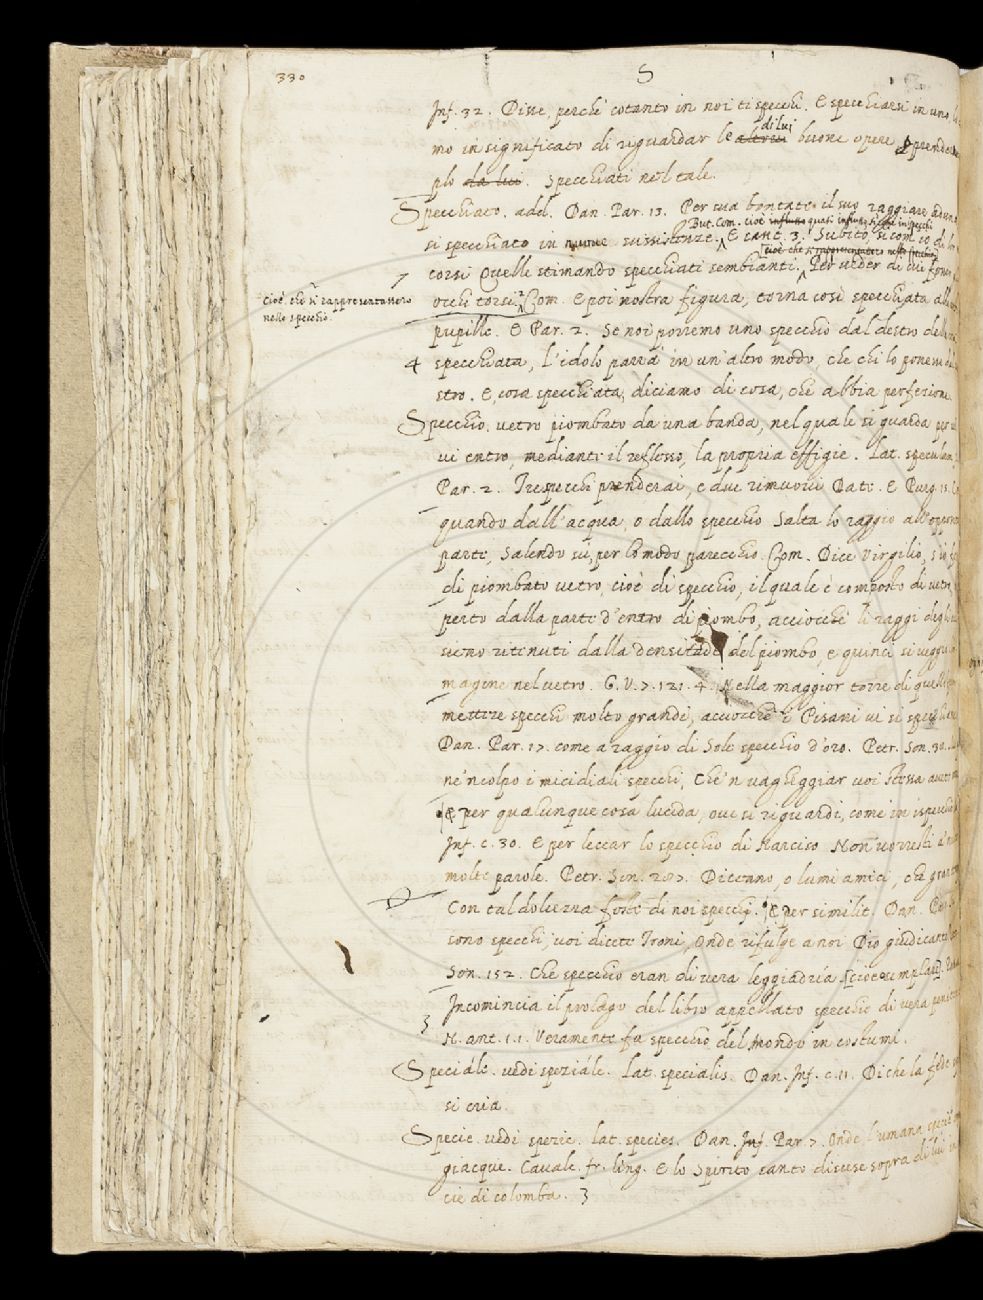 330
S
Inf. 32. Disse, perchè cotanto in noi ti specchi. E specchiarsi in uno,
mo in significato di riguardar le altrui di lui buone opere, e prender
plo da lui. Specchiati ne'l tale.
Specchiato. add. Dan. Par. 13. Per sua bontate il suo raggiare aduna
But. Com. cioè influno quasi
si specchiato in nuove sussistenze. E cant. 3. Subito, sì com' io di lor
cioè che si rappresentatero nello specchio
corsi Quelle stimando specchiati sembianti, Per veder di cui fosser
cioè, che si rappresentassero
nello specchio.
occhi torsi. Com. E poi nostra figura, torna così specchiata alle
pupille. E Par. 2. Se noi porremo uno specchio dal destro della
4 specchiata, l'idolo parrà in un'altro modo, che chi lo ponesse dal
stro. E, cosa specchiata, diciamo di cosa, che abbia perfezione.
Specchio. vetro piombato da una banda, nel quale si guarda per
vi entro, mediante il reflesso, la propria effigie. Lat. speculum,
Par. 2. Tre specchi prenderai, e due rimuovi Dato. E Purg. 15.
quando dall'acqua, o dallo specchio Salta lo raggio all'opposita
parte, Salendo su, per lo modo parecchio. Com. Dice Virgilio, s'io
di piombato vetro, cioè di specchio, il quale è composto di vetro
perto dalla parte d'entro di piombo, acciocchè li raggi degli
sieno ritenuti dalla densitade del piombo, e quinci si veggia
magine nel vetro. G. V. 7. 121. 4. Nella maggior torre di quelle
mettere specchi molto grandi, acciocchè i Pisani vi si specchiassero
Dan. Par. 17. come a raggio di Sole specchio d'oro. Petr. Son. 38.
ne'ncolpo i micidiali specchi, Che'n vagheggiar voi stessa avete
E per qualunque cosa lucida, ove si riguardi, come in ispecchio
Inf. c. 30. E per leccar lo specchio di Narciso Non vorresti a'n
molte parole. Petr. Son. 207. Dicenno, o lumi amici, che gran
Con tal dolcezza foste di noi specchi. E per similit. Dan. Par.
sono specchi, voi dicete Troni, Onde rifulge a noi Dio giudicante
Son. 152. Che specchio eran di vera leggiadria
Incomincia il prolago del libro appellato specchio di vera penitenza
3 N. ant. 1. 1. Veramente fu specchio del Mondo in costumi.
Speciále. vedi speziále. Lat. specialis. Dan. Inf. c. 11. Di che la fede
si cria.
Specie. vedi spezie. lat. species. Dan. Inf. Par 7. Onde l'umana specie
giacque. Cavalc. fr. ling. E lo Spirito santo discese sopra di lui in
cie di colomba. 3